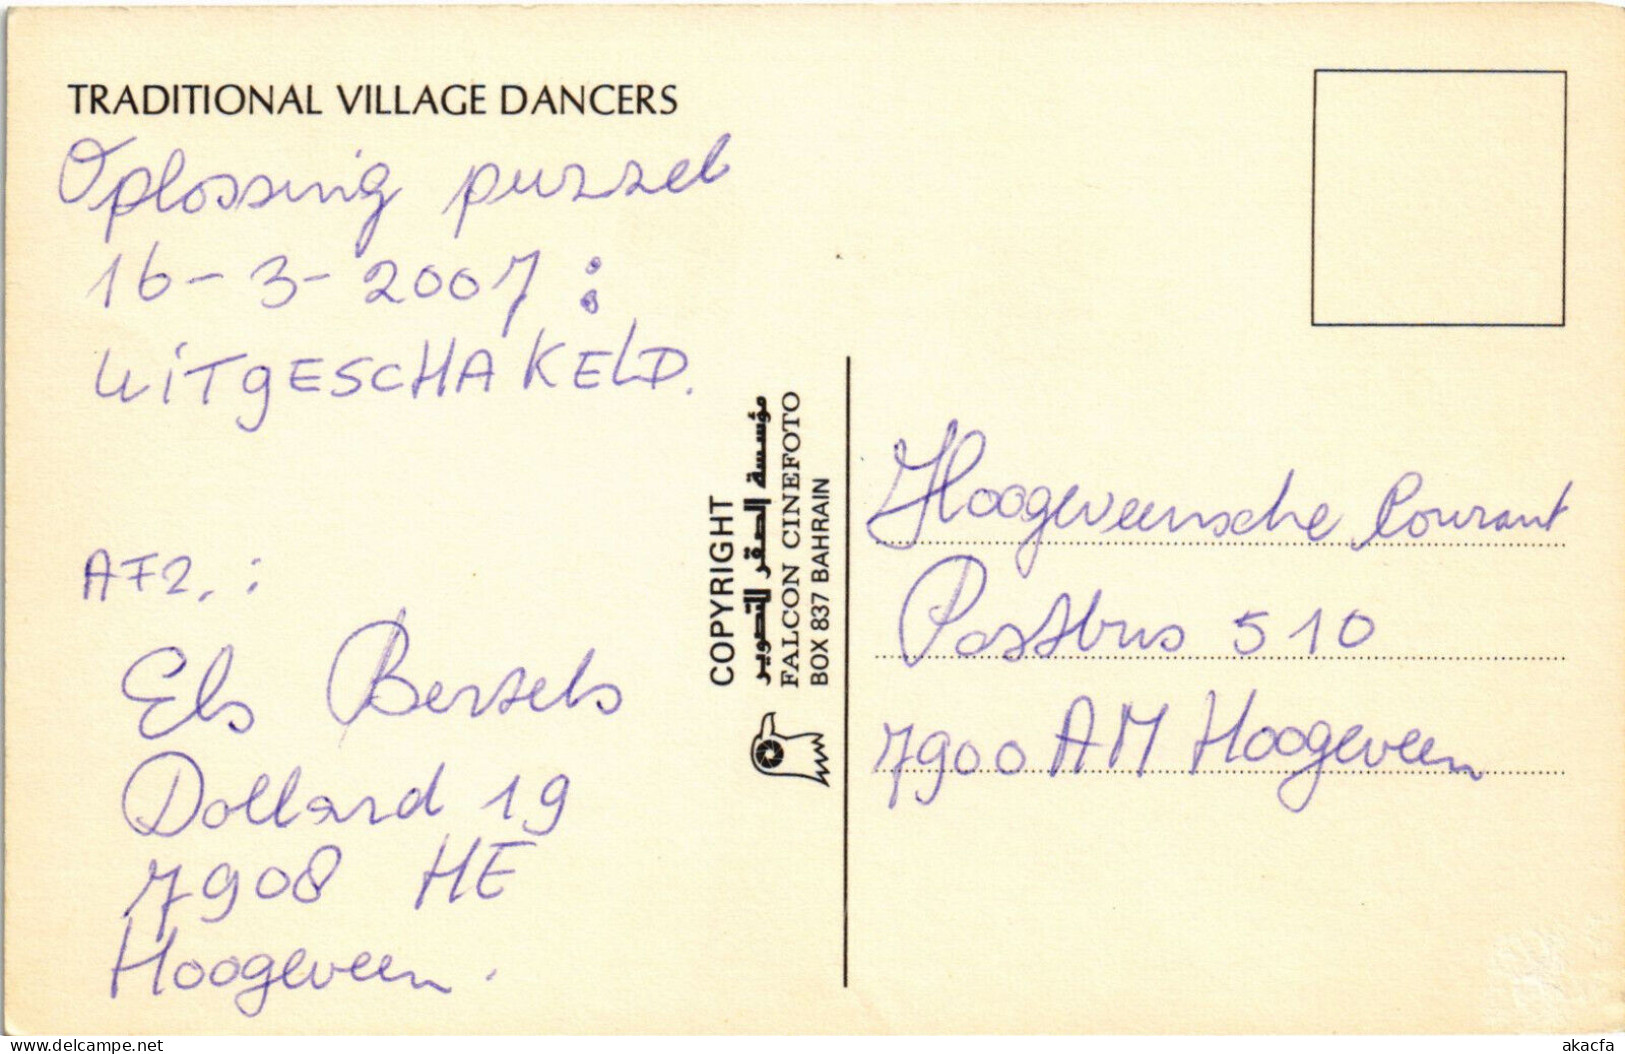 TRADITIONAL VILLAGE DANCERS
Oplossing puzzel
16-3-2007:
UITGESCHAKELD.
AFZ.:
Els Bersels
Dollard 19
7908 HE
Hoogeveen.
COPYRIGHT
مؤسسة الصقر للتصوير
FALCON CINEFOTO
BOX 837 BAHRAIN
Hoogeveensche Courant
Postbus 510
7900 AM Hoogeveen
delcampe.net
akacfa